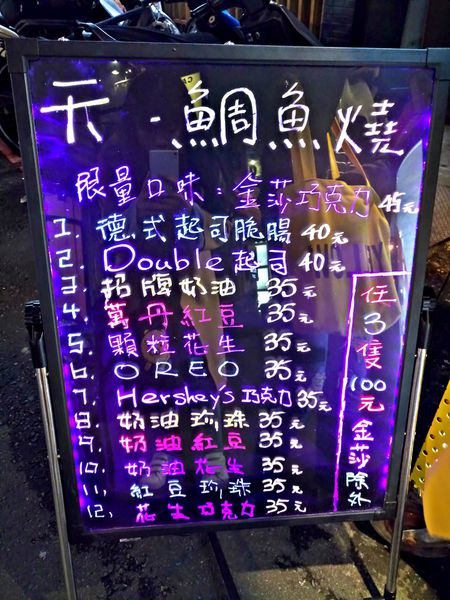 天·鯛魚燒
限量口味：金莎巧克力 45元
1. 德式起司脆腸 40元
2. Double起司 40元
3. 招牌奶油 35元
4. 萬丹紅豆 35元
5. 顆粒花生 35元
6. OREO 35元
7. Hershey's巧克力 35元
8. 奶油珍珠 35元
9. 奶油紅豆 35元
10. 奶油花生 35元
11. 紅豆珍珠 35元
12. 花生巧克力 35元
任3隻100元金莎除外